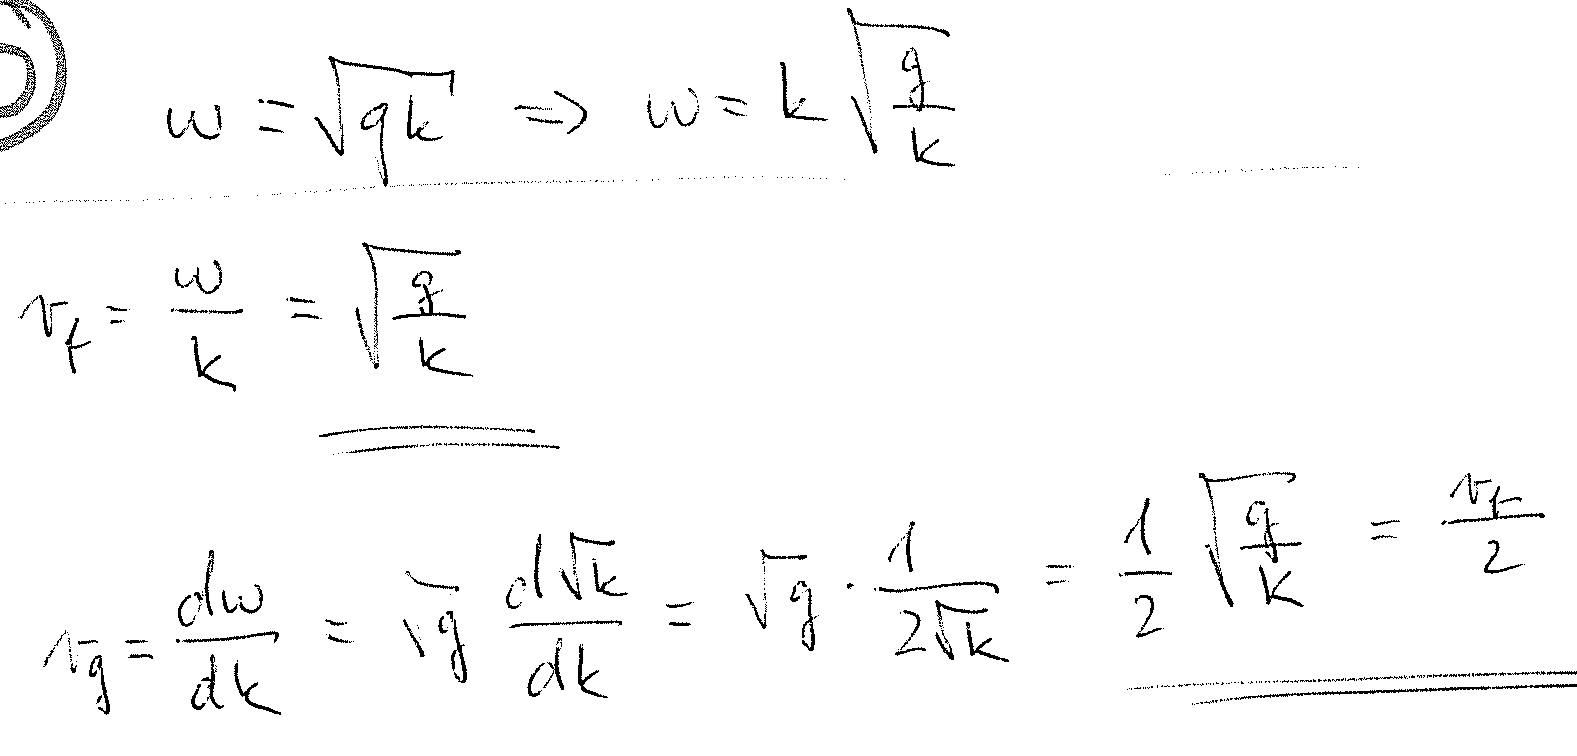 ω = √gk ⇒ ω = k √(g/k)
v_f = ω/k = √(g/k)
v_g = dω/dk = √g d√k/dk = √g · 1/(2√k) = 1/2 √(g/k) = v_f/2